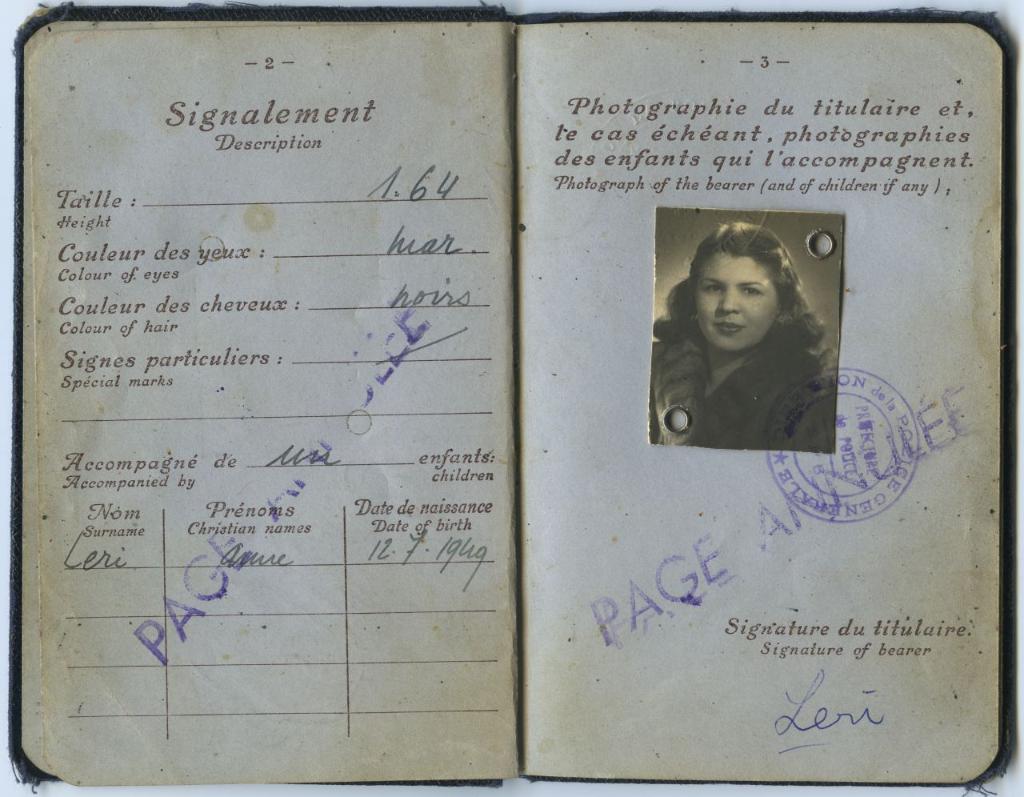 – 2 –
Signalement
Description
Taille : 1.64
Height
Couleur des yeux : mar.
Colour of eyes
Couleur des cheveux : noirs
Colour of hair
Signes particuliers :
Spécial marks
Accompagné de un enfants:
Accompanied by children
Nom Prénoms Date de naissance
Surname Christian names Date of birth
Leri Anne 12.7.1949
PAGE
– 3 –
Photographie du titulaire et,
le cas échéant, photographies
des enfants qui l'accompagnent.
Photograph of the bearer (and of children if any) ;
PAGE
Signature du titulaire.
Signature of bearer
Leri